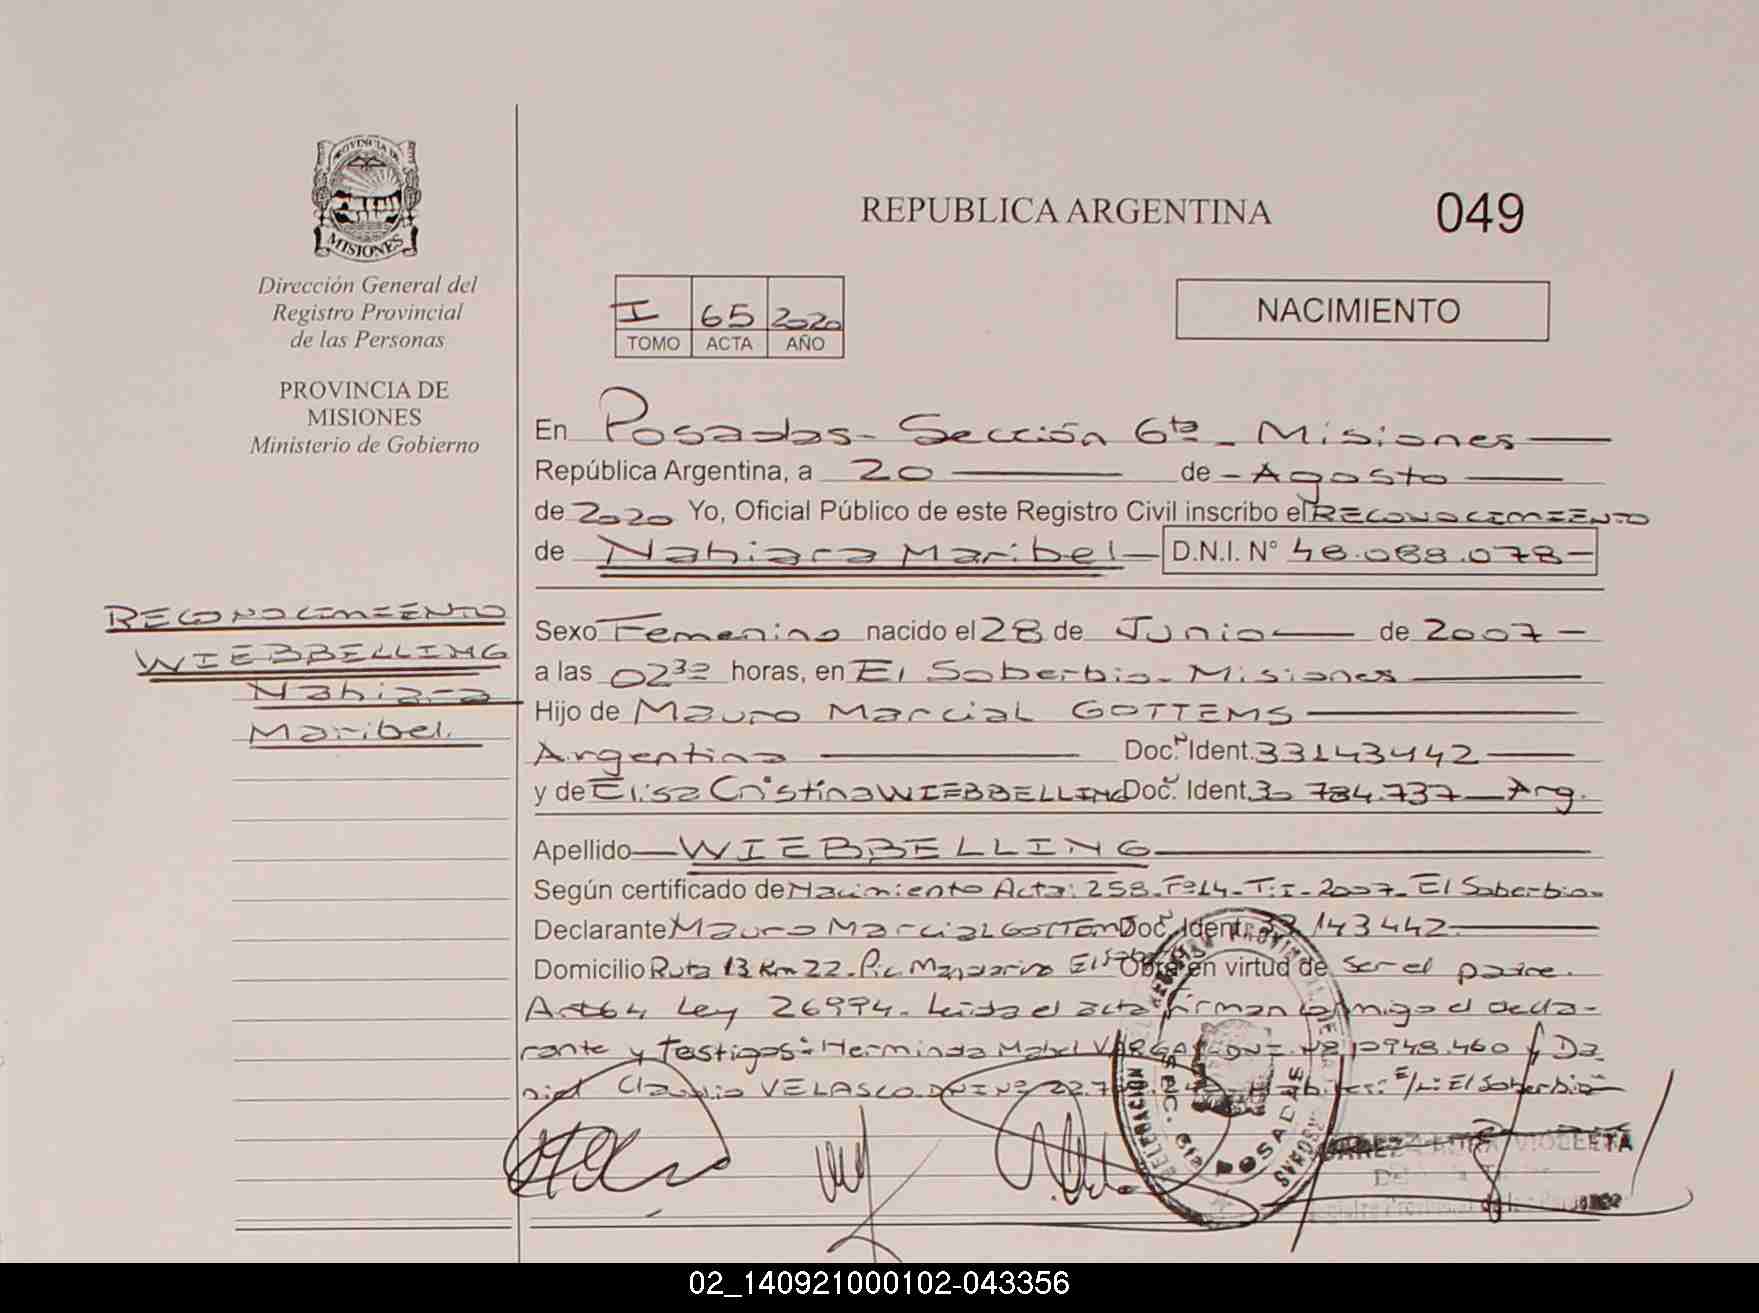 PROVINCIA DE
MISIONES
Dirección General del
Registro Provincial
de las Personas
PROVINCIA DE
MISIONES
Ministerio de Gobierno
RECONOCIMIENTO
WIEBBELLING
Nahiara
Maribel.
REPUBLICA ARGENTINA
049
I 65 2020
TOMO ACTA AÑO
NACIMIENTO
En Posadas- Sección 6ta- Misiones
República Argentina, a 20 de - Agosto
de 2020 Yo, Oficial Público de este Registro Civil inscribo el RECONOCIMIENTO
de Nahiara Maribel D.N.I. N° 48.088.078-
Sexo Femenino nacido el 28 de Junio de 2007-
a las 02³⁰ horas, en El Soberbio- Misiones
Hijo de Mauro Marcial GOTTEMS
Argentina Doc. Ident. 33143442
y de Elisa Cristina WIEBBELLING Doc. Ident. 30 784.737 Arg.
Apellido WIEBBELLING
Según certificado de Nacimiento Acta: 258. Fº14- T: I- 2007- El Soberbio-
Declarante Mauro Marcial GOTTEMS Doc. Ident. 33143442
Domicilio Ruta 13 Km 22. Pic. Mandarino El Sob. Obra en virtud de ser el padre.
Art 64 Ley 26994. Leida el acta firman conmigo el decla-
rante y Testigos: Herminda Mabel VARGAS DNI Nº 10948.460 y Da
niel Claudio VELASCO. DNI Nº 22.7 El Soberbio
REGISTRO PROVINCIAL DE LAS PERSONAS
DELEGACION SECC. 6ta
POSADAS
VIOLETA